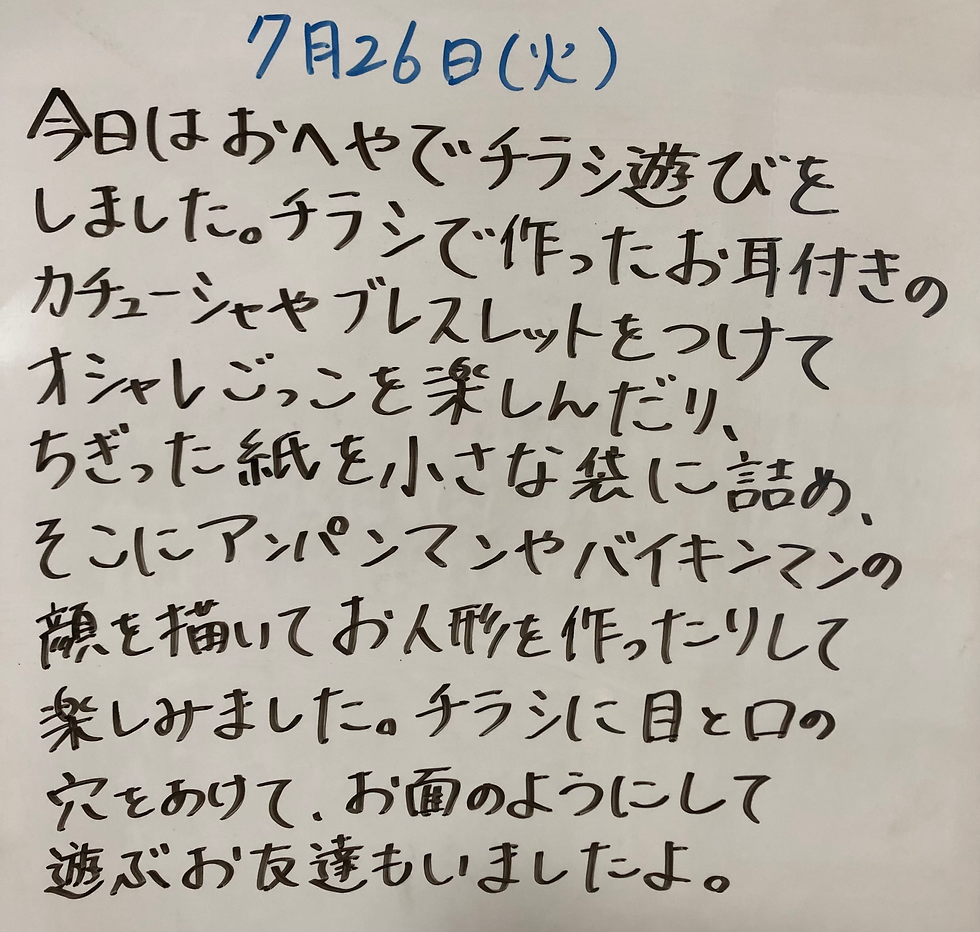 7月26日(火)
今日はおへやでチラシ遊びを
しました。チラシで作ったお耳付きの
カチューシャやブレスレットをつけて
オシャレごっこを楽しんだり、
ちぎった紙を小さな袋に詰め、
そこにアンパンマンやバイキンマンの
顔を描いてお人形を作ったりして
楽しみました。チラシに目と口の
穴をあけて、お面のようにして
遊ぶお友達もいましたよ。